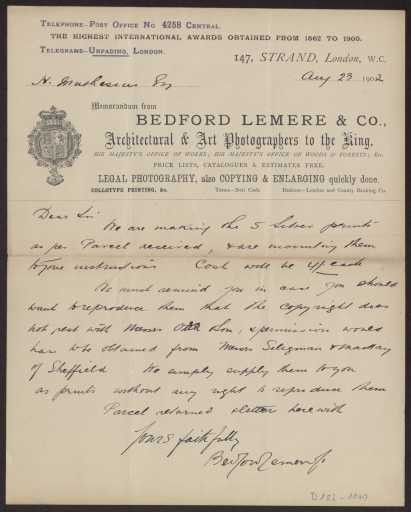 TELEPHONE–POST OFFICE No 4258 CENTRAL.
THE HIGHEST INTERNATIONAL AWARDS OBTAINED FROM 1862 TO 1900.
TELEGRAMS–UNFADING, LONDON.
147, STRAND, London, W.C.
H. Muthesius Esq Aug 23 1902
Memorandum from
BEDFORD LEMERE & CO.,
Architectural & Art Photographers to the King,
HIS MAJESTY'S OFFICE OF WORKS; HIS MAJESTY'S OFFICE OF WOODS & FORESTS; &c.
PRICE LISTS, CATALOGUES & ESTIMATES FREE.
LEGAL PHOTOGRAPHY, also COPYING & ENLARGING quickly done.
COLLOTYPE PRINTING, &c. Terms–Nett Cash. Bankers–London and County Banking Co.
Dear Sir
We are making the 5 Silver prints
as per Parcel received, & are mounting them
to your instructions Cost will be 4/- each
We must remind you in case you should
want to reproduce them that the copyright does
not rest with Messrs Son, & permission would
have to be obtained from Messrs Seligman & Mackay
of Sheffield We simply supply them to you
as prints without any right to reproduce them
Parcel returned & letter herewith
Yours faithfully
Bedford Lemere & Co